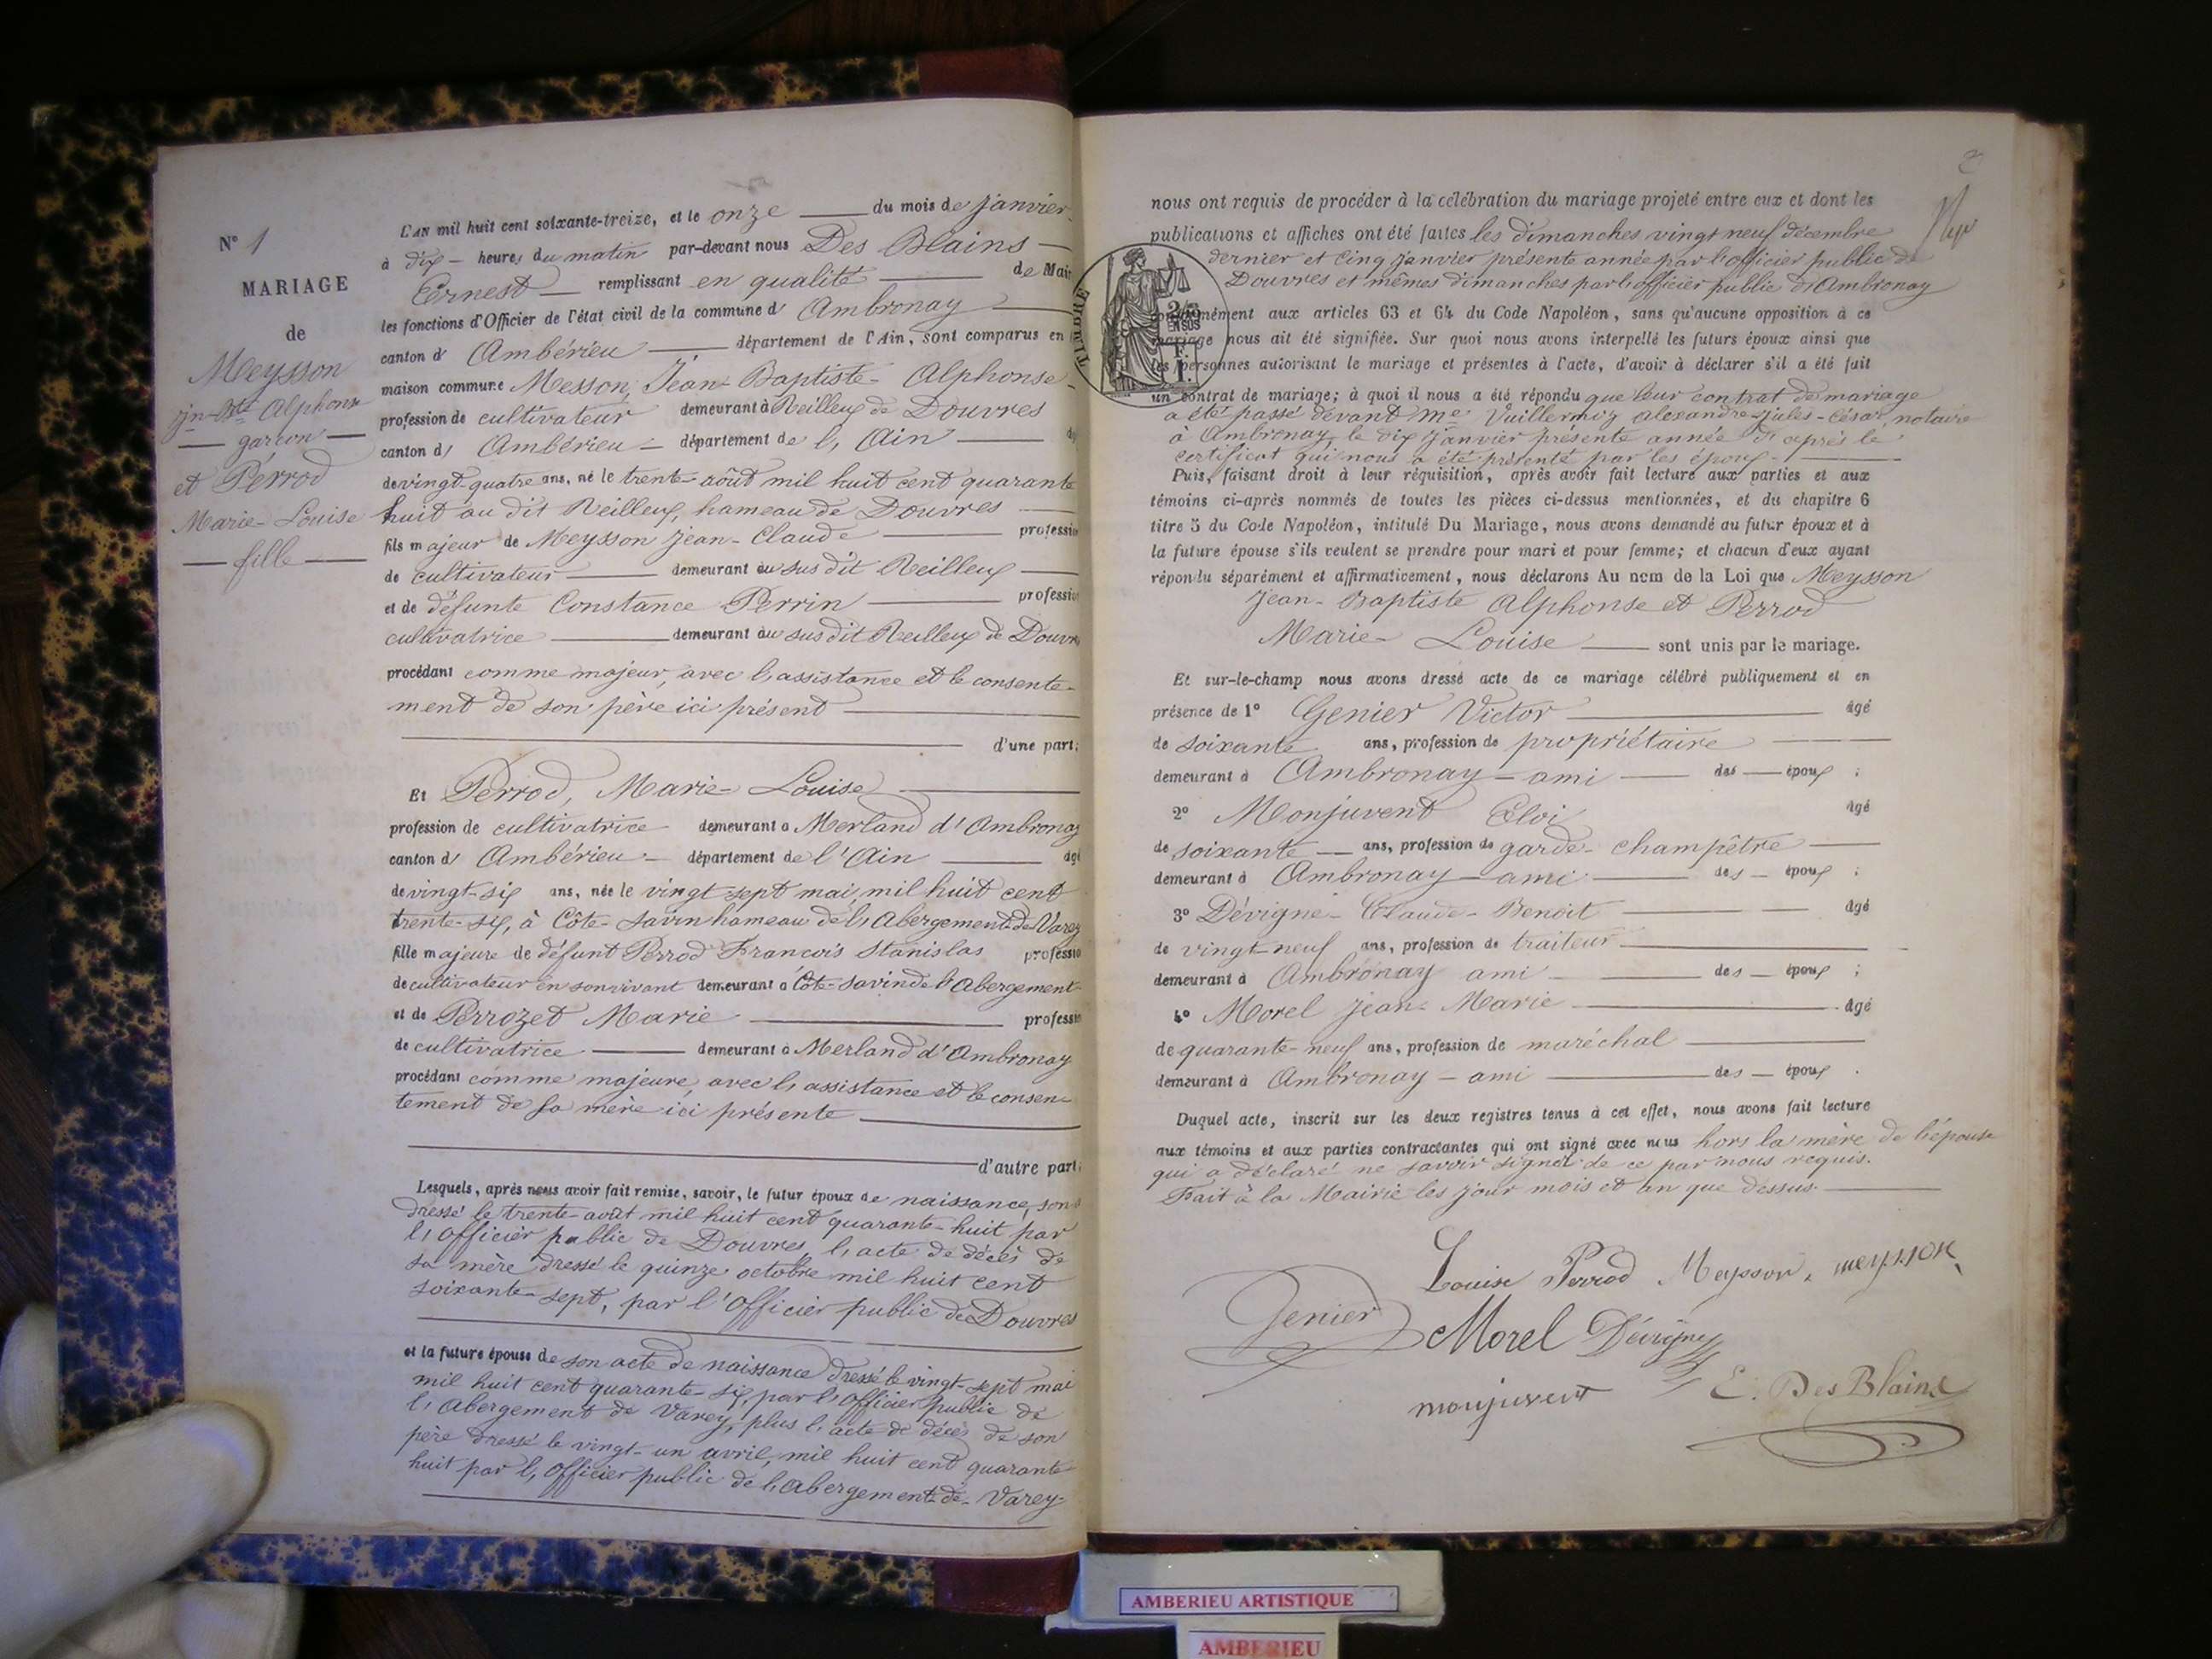 N° 1
MARIAGE
de
Meysson
Jn-Bte Alphonse
garçon
et Perrod
Marie-Louise
fille
L'AN mil huit cent soixante-treize, et le onze du mois de janvier
à dix heures du matin par-devant nous Des Blains
Ernest remplissant en qualité de Maire
les fonctions d'Officier de l'état civil de la commune d' Ambronay
canton d' Ambérieu département de l'Ain, sont comparus en
maison commune Messon, Jean-Baptiste-Alphonse
profession de cultivateur demeurant à Reilleux de Douvres
canton d' Ambérieu département de l'Ain
de vingt-quatre ans, né le trente août mil huit cent quarante
huit au dit Reilleux, hameau de Douvres
fils majeur de Meysson Jean-Claude profession
de cultivateur demeurant au susdit Reilleux
et de défunte Constance Perrin profession
cultivatrice demeurant au susdit Reilleux de Douvres
procédant comme majeur, avec l'assistance et le consente-
ment de son père ici présent
d'une part;
Et Perrod, Marie-Louise
profession de cultivatrice demeurant à Merland d'Ambronay
canton d' Ambérieu département de l'Ain âgé
de vingt-six ans, née le vingt-sept mai mil huit cent
trente-six, à Côte-Savin hameau de l'Abergement-de-Varey
fille majeure de défunt Perrod François Stanislas profession
de cultivateur en son vivant demeurant à Côte-Savin de l'Abergement
et de Perrozet Marie profession
de cultivatrice demeurant à Merland d'Ambronay
procédant comme majeure, avec l'assistance et le consen-
tement de sa mère ici présente
d'autre part;
Lesquels, après nous avoir fait remise, savoir, le futur époux de naissance, son
dressé le trente août mil huit cent quarante-huit par
l'Officier public de Douvres, l'acte de décès de
sa mère dressé le quinze octobre mil huit cent
soixante-sept, par l'Officier public de Douvres
et la future épouse de son acte de naissance dressé le vingt-sept mai
mil huit cent quarante-six, par l'Officier public de
l'Abergement de Varey, plus l'acte de décès de son
père dressé le vingt-un avril, mil huit cent quarante
huit par l'Officier public de l'Abergement-de-Varey
2
nous ont requis de procéder à la célébration du mariage projeté entre eux et dont les
publications et affiches ont été faites les dimanches vingt neuf décembre
dernier et cinq janvier présente année par l'officier public de
Douvres et mêmes dimanches par l'officier public d'Ambronay
conformément aux articles 63 et 64 du Code Napoléon, sans qu'aucune opposition à ce
mariage nous ait été signifiée. Sur quoi nous avons interpellé les futurs époux ainsi que
les personnes autorisant le mariage et présentes à l'acte, d'avoir à déclarer s'il a été fait
un contrat de mariage; à quoi il nous a été répondu que leur contrat de mariage
a été passé devant Me Vuillermoz Alexandre-Jules-César, notaire
à Ambronay, le dix janvier présente année d'après le
certificat qui nous a été présenté par les époux
Puis, faisant droit à leur réquisition, après avoir fait lecture aux parties et aux
témoins ci-après nommés de toutes les pièces ci-dessus mentionnées, et du chapitre 6
titre 5 du Code Napoléon, intitulé Du Mariage, nous avons demandé au futur époux et à
la future épouse s'ils veulent se prendre pour mari et pour femme; et chacun d'eux ayant
répondu séparément et affirmativement, nous déclarons Au nom de la Loi que Meysson
Jean-Baptiste Alphonse et Perrod
Marie-Louise sont unis par le mariage.
Et sur-le-champ nous avons dressé acte de ce mariage célébré publiquement et en
présence de 1° Genier Victor âgé
de soixante ans, profession de propriétaire
demeurant à Ambronay ami des époux ;
2° Monjuvent Eloi âgé
de soixante ans, profession de garde-champêtre
demeurant à Ambronay ami des époux ;
3° Dévigne Claude-Benoit âgé
de vingt-neuf ans, profession de traiteur
demeurant à Ambronay ami des époux ;
4° Morel Jean-Marie âgé
de quarante-neuf ans, profession de maréchal
demeurant à Ambronay ami des époux .
Duquel acte, inscrit sur les deux registres tenus à cet effet, nous avons fait lecture
aux témoins et aux parties contractantes qui ont signé avec nous hors la mère de l'épouse
qui a déclaré ne savoir signer de ce par nous requis.
Fait à la Mairie les jour mois et an que dessus.
Louise Perrod Meysson. meysson
Genier Morel Dévigne
monjuvent E. Des Blains
TIMBRE
2/10 EN SUS
1 F.
AMBERIEU ARTISTIQUE
AMBERIEU